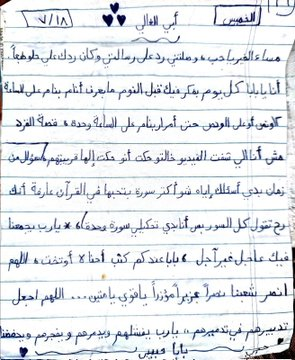 الخميس
أبي الغالي
٧/١٨
مساء الخير يا حب، وصلتني رد على رسالتي وكان ردك على خلو طبعاً.
أنا يا بابا كل يوم بفكر فيك قبل النوم ما بعرف أنام بنام على الساعة
على الونص حتى أمرار بنام على الساعة وحدة، قصة القرد
مش أنا الي شفت الفيديو خالتو حكت أنو حكت إلها قريبتهم، سؤال من
زمان بدي أسئلك إياه شو أكتر سورة بتحبها في القرآن عارفة أنك
رح تقول كل السور بس أنا بدي تحكيلي سورة وحدة، * يارب يجمعنا
فيك عاجل غير آجل، بابا عندكم كتب أحنا لا أو تخت، اللهم
انصر شعبنا نصراً عزيزاً مؤزراً يا قوي يا متين... اللهم اجعل
تدبيرهم في تدميرهم، يارب يقتلهم ويدمرهم ويفجرهم ويحفظنا
بابا حبيبي